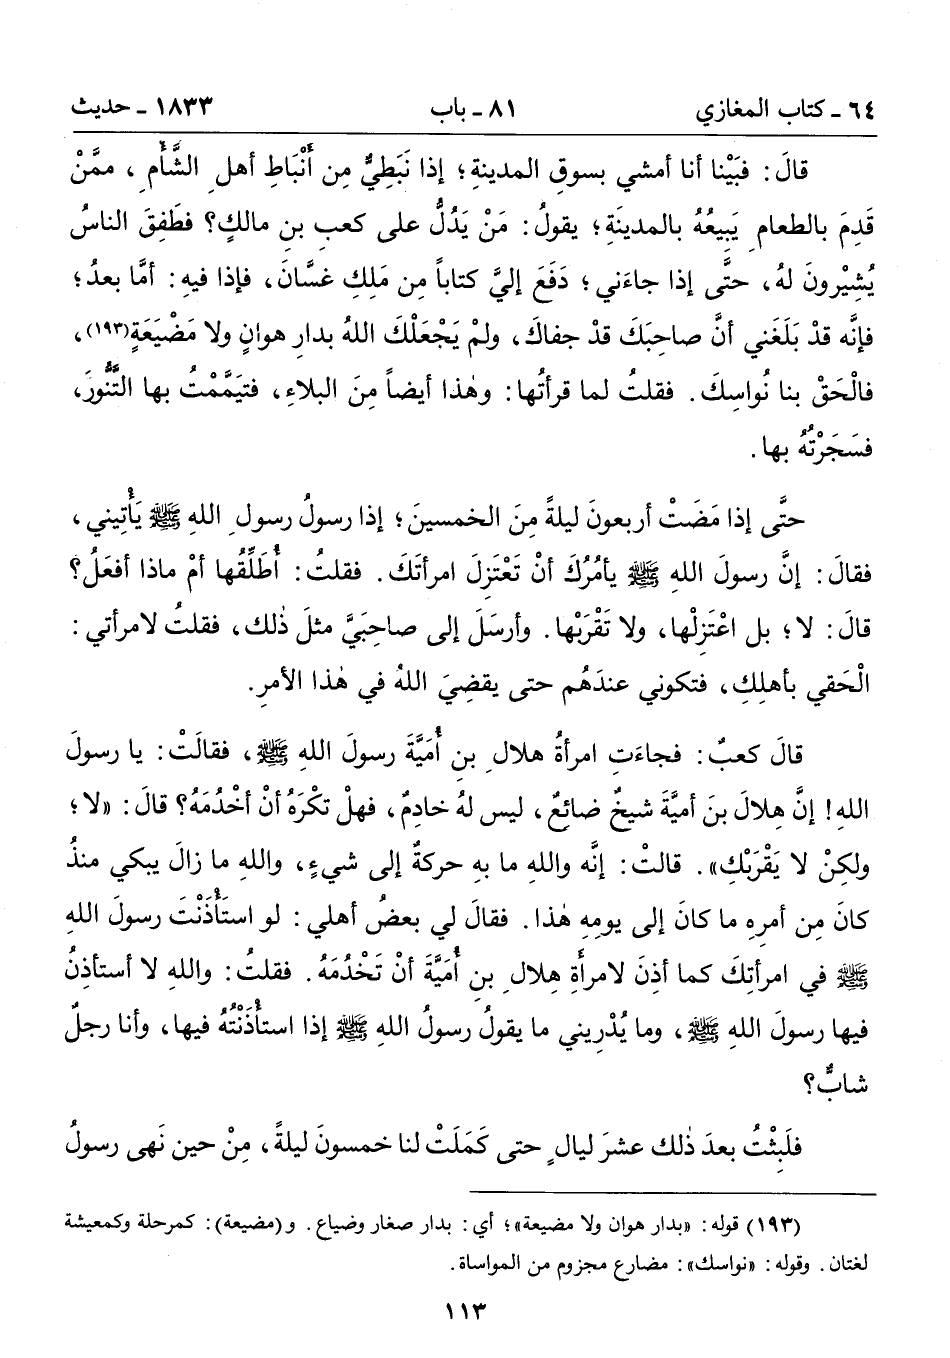 ٦٤ ـ كتاب المغازي ٨١ ـ باب ١٨٣٣ ـ حديث
قالَ: فبَيْنا أنا أمشي بسوقِ المدينةِ؛ إذا نَبَطِيٌّ مِن أَنْباطِ أهلِ الشَّأْمِ، ممَّنْ
قَدِمَ بالطعامِ يَبِيعُهُ بالمدينَةِ؛ يقولُ: مَنْ يَدُلُّ على كعبِ بنِ مالكٍ؟ فطَفِقَ الناسُ
يُشِيْرونَ لهُ، حتَّى إذا جاءَني؛ دَفَعَ إليَّ كتاباً مِن مَلِكِ غسَّانَ، فإذا فيهِ: أمَّا بعدُ؛
فإنَّه قدْ بَلَغَني أنَّ صاحِبَكَ قدْ جفاكَ، ولمْ يَجْعَلْكَ اللهُ بدارِ هوانٍ ولا مَضْيَعَةٍ(١٩٣)،
فالْحَقْ بنا نُواسِكَ. فقلتُ لما قرأتُها: وهٰذا أيضاً مِنَ البلاءِ، فتيَمَّمْتُ بها التَّنُّورَ،
فسَجَرْتُهُ بها.
حتَّى إذا مَضَتْ أربعونَ ليلةً مِنَ الخمسينَ؛ إذا رسولُ رسولِ اللهِ ﷺ يَأْتِيني،
فقالَ: إنَّ رسولَ اللهِ ﷺ يأمُرُكَ أنْ تَعْتَزِلَ امرأتَكَ. فقلتُ: أُطَلِّقُها أمْ ماذا أفعَلُ؟
قالَ: لا؛ بل اعْتَزِلْها، ولا تَقْرَبْها. وأرسَلَ إلى صاحِبَيَّ مثلَ ذٰلك، فقلتُ لامرأتي:
الْحَقي بأهلِكِ، فتكوني عندَهُم حتى يقضِيَ اللهُ في هٰذا الأمرِ.
قالَ كعبٌ: فجاءَتِ امرأةُ هلالِ بنِ أُمَيَّةَ رسولَ اللهِ ﷺ، فقالَتْ: يا رسولَ
اللهِ! إنَّ هِلالَ بنَ أميَّةَ شيخٌ ضائِعٌ، ليس لهُ خادِمٌ، فهلْ تكْرَهُ أنْ أخْدُمَهُ؟ قالَ: «لا؛
ولكِنْ لا يَقْرَبْكِ». قالتْ: إنَّه واللهِ ما بهِ حركةٌ إلى شيءٍ، واللهِ ما زالَ يبكي منذُ
كانَ مِن أمرِهِ ما كانَ إلى يومِهِ هٰذا. فقالَ لي بعضُ أهلي: لو استَأْذَنْتَ رسولَ اللهِ
ﷺ في امرأتِكَ كما أذِنَ لامرأةِ هِلالِ بنِ أُمَيَّةَ أنْ تَخْدُمَهُ. فقلتُ: واللهِ لا أستأذِنُ
فيها رسولَ اللهِ ﷺ، وما يُدْرِيني ما يقولُ رسولُ اللهِ ﷺ إذا استَأْذَنْتُهُ فيها، وأنا رجلٌ
شابٌّ؟
فلَبِثْتُ بعدَ ذٰلك عشرَ ليالٍ حتى كَمَلَتْ لنا خمسونَ ليلةً، مِنْ حينِ نَهى رسولُ
(١٩٣) قوله: «بدار هوان ولا مضيعة»؛ أي: بدار صغار وضياع. و(مضيعة): كمرحلة وكمعيشة
لغتان. وقوله: «نواسك»: مضارع مجزوم من المواساة.
١١٣